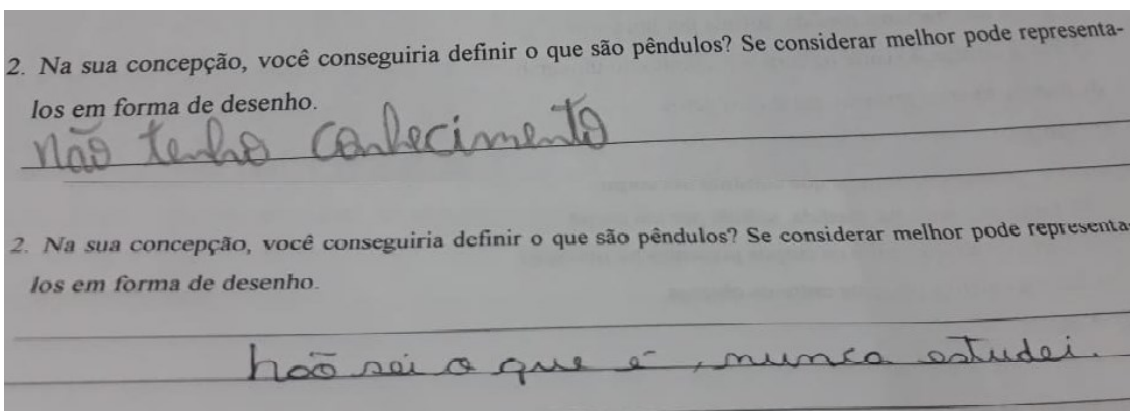 2. Na sua concepção, você conseguiria definir o que são pêndulos? Se considerar melhor pode representa-
los em forma de desenho.
não tenho conhecimento
2. Na sua concepção, você conseguiria definir o que são pêndulos? Se considerar melhor pode representa-
los em forma de desenho.
não sei o que é, nunca estudei.